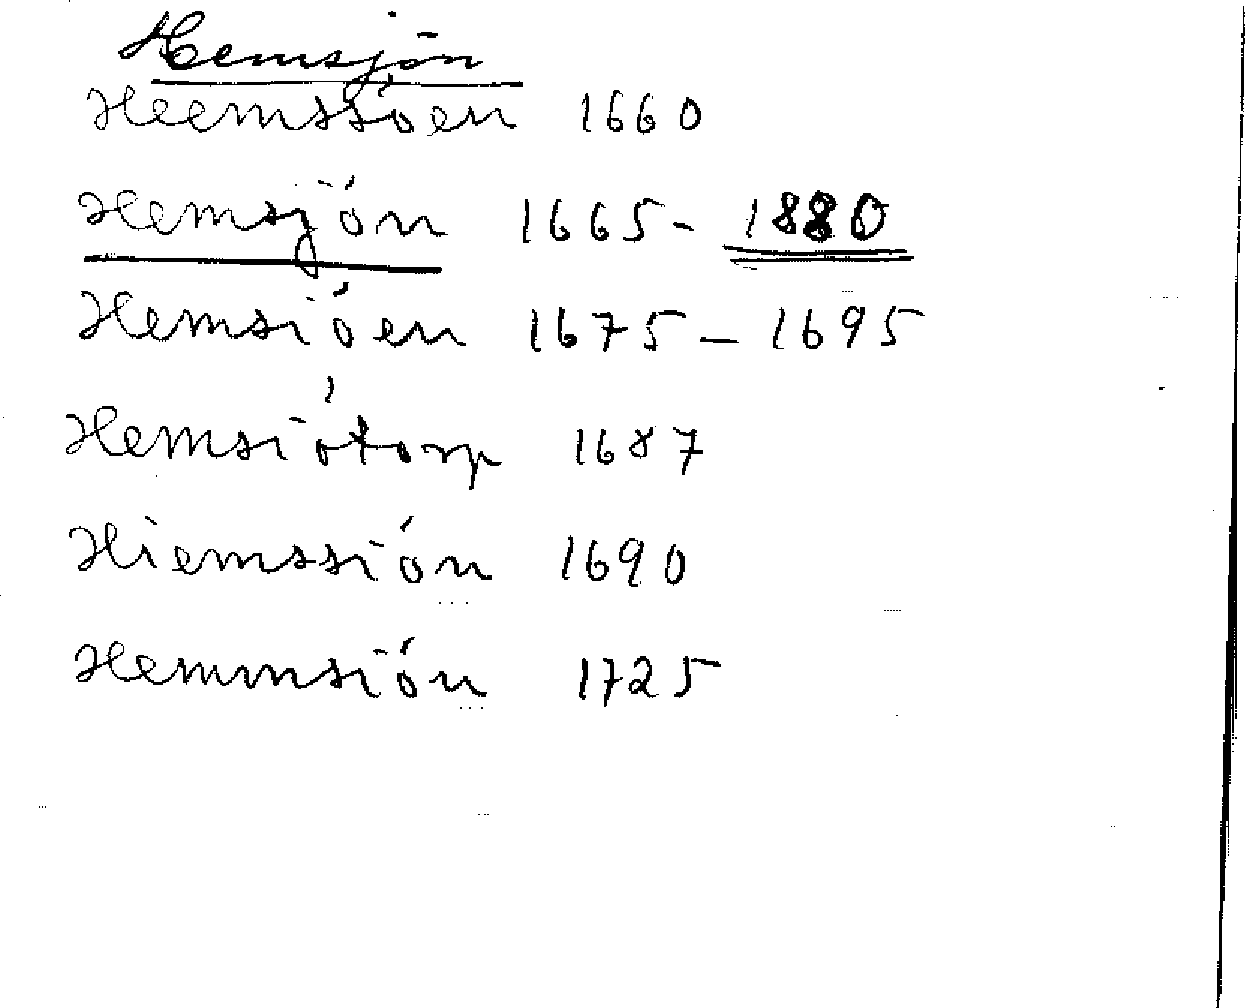 Hemsjön
Heemssiöen 1660
Hemsjön 1665- 1880
Hemsiöen 1675 – 1695
Hemsiötorp 1687
Hiemssiön 1690
Hemmsiön 1725